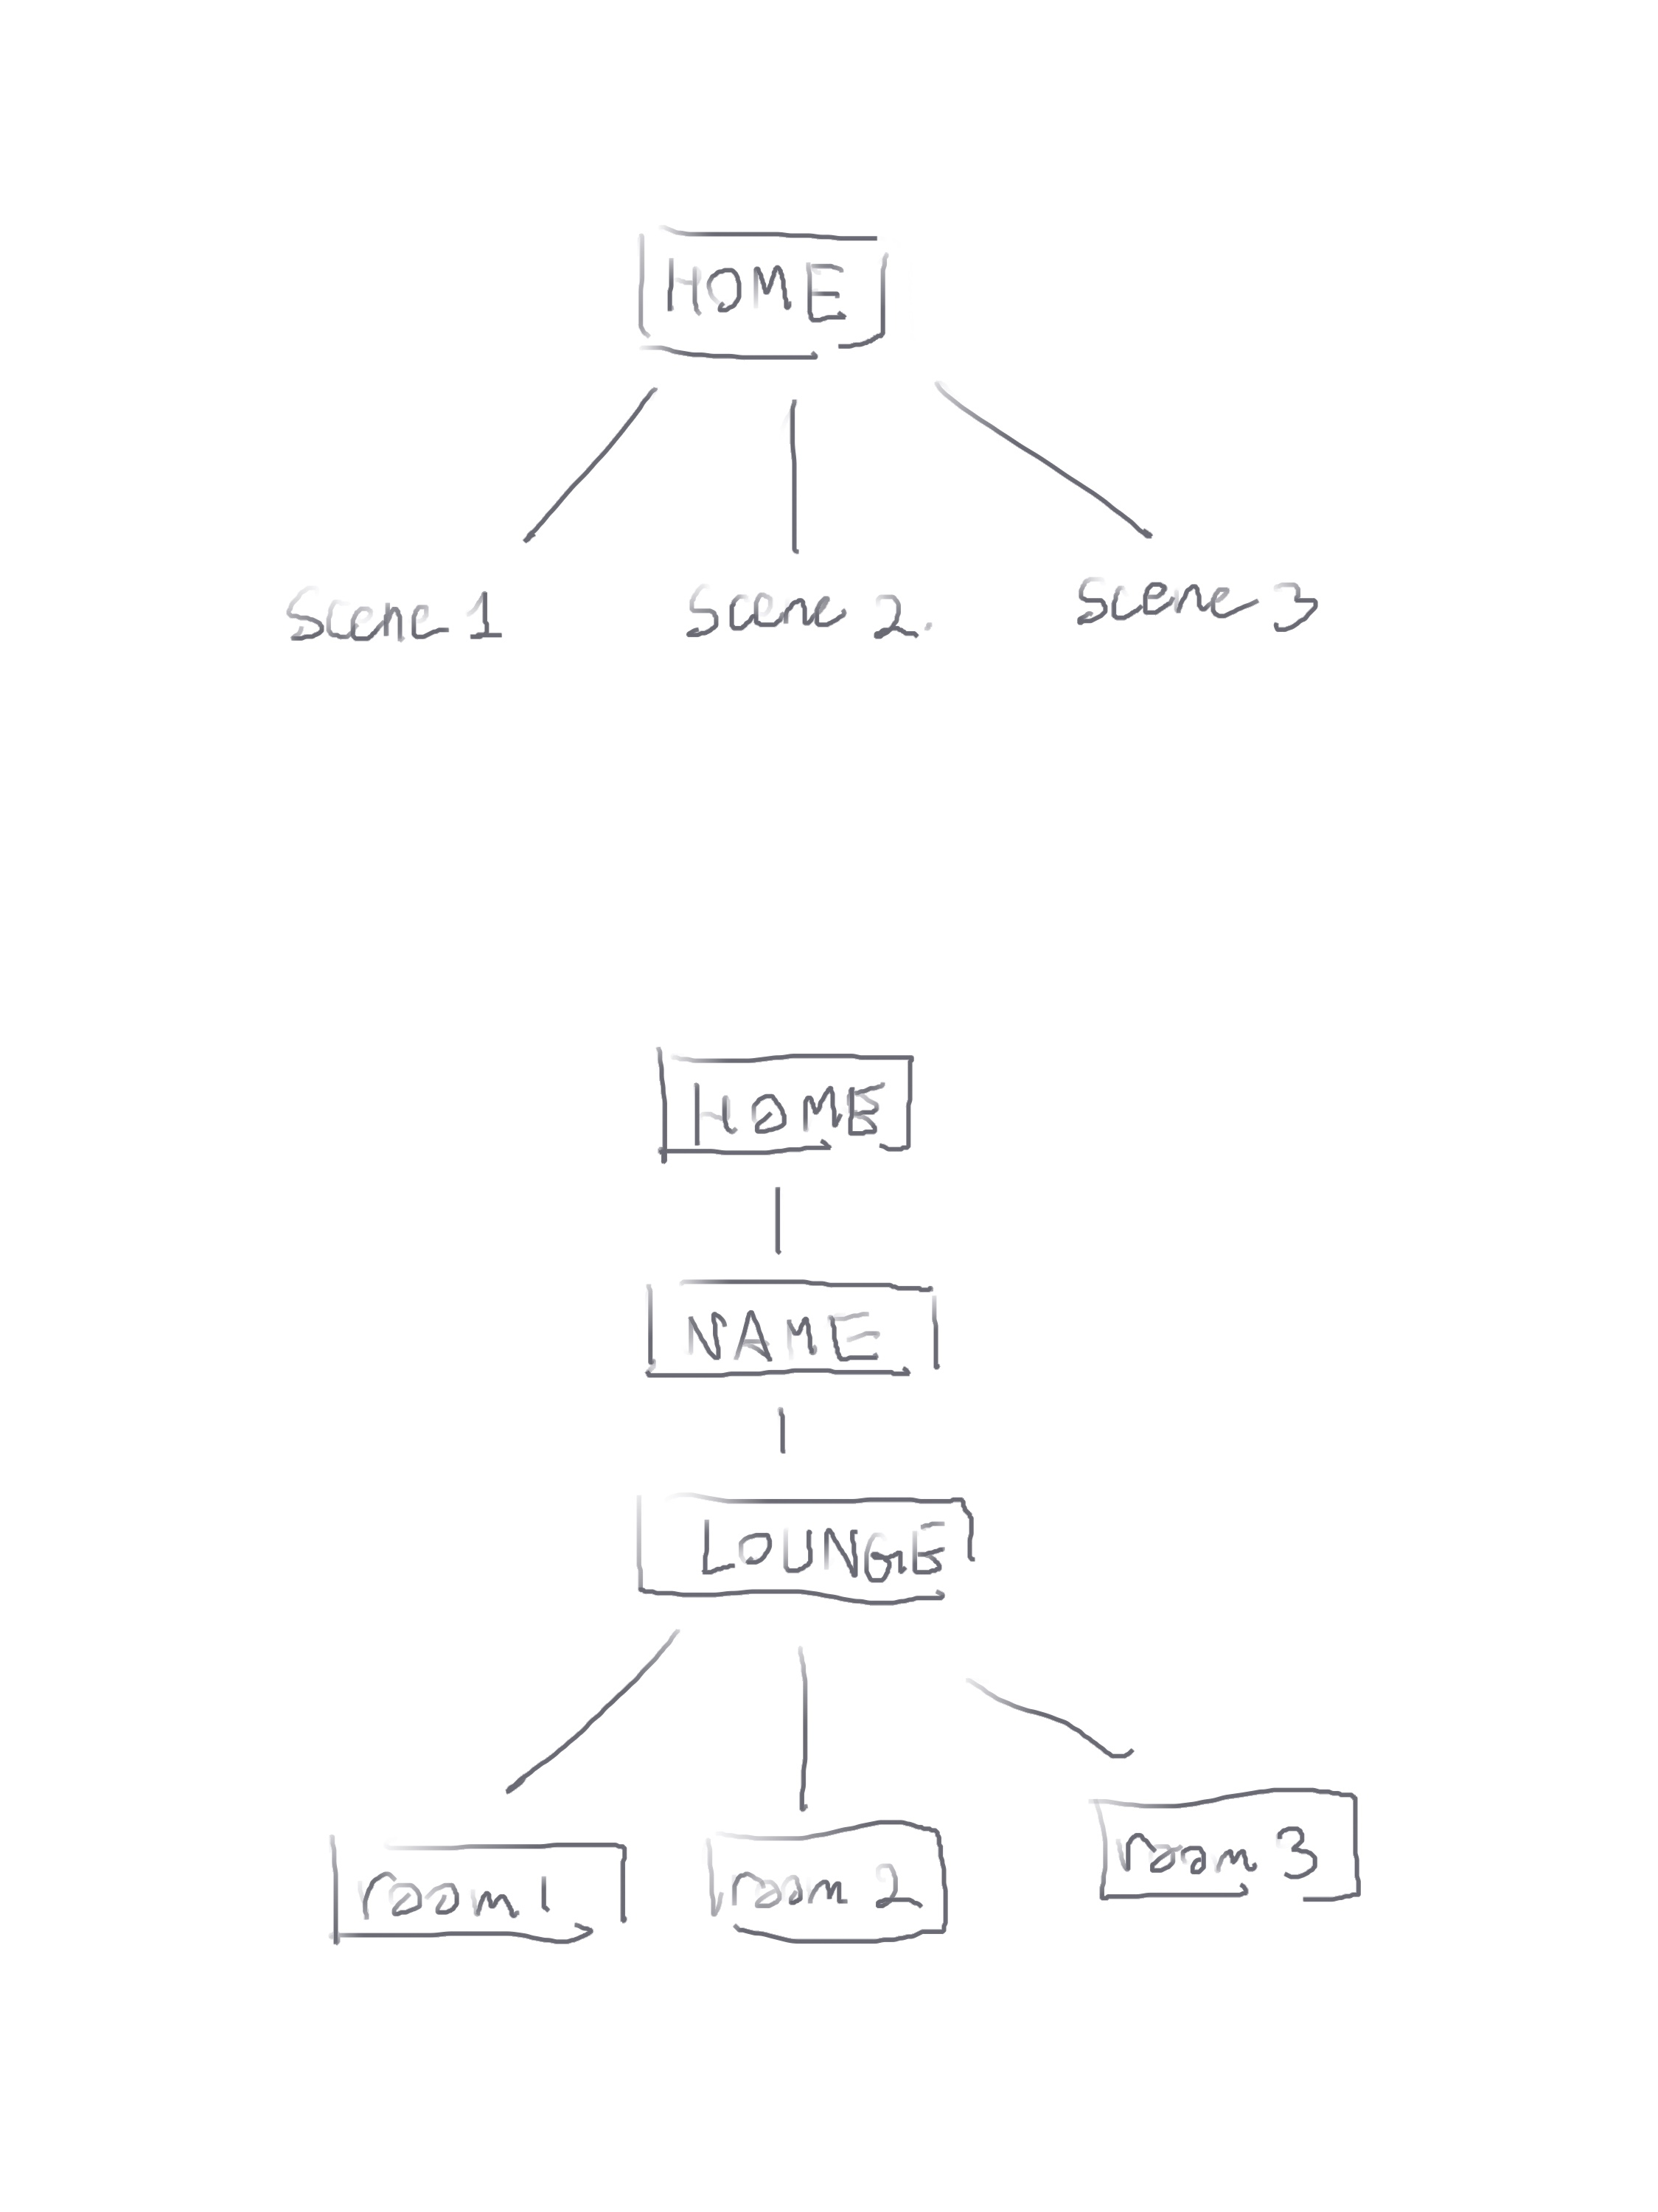 HOME
Scene 1 Scene 2. Scene 3
HOME
NAME
LOUNGE
Room 1 room 2 Room 3